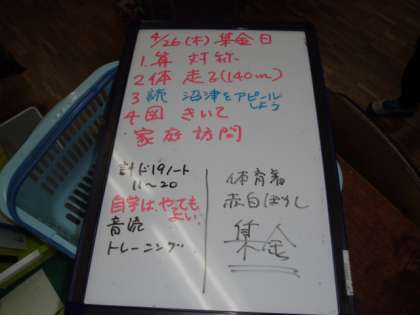 4/26(木)集金日
1.算 対称
2.体 走る(140m)
3 総 沼津をアピール
しよう
4 図 きいて
家庭訪問
計ド19ノート
11〜20
自学は、やっても
よい。
音読
トレーニング
体育着
赤白ぼうし
集金